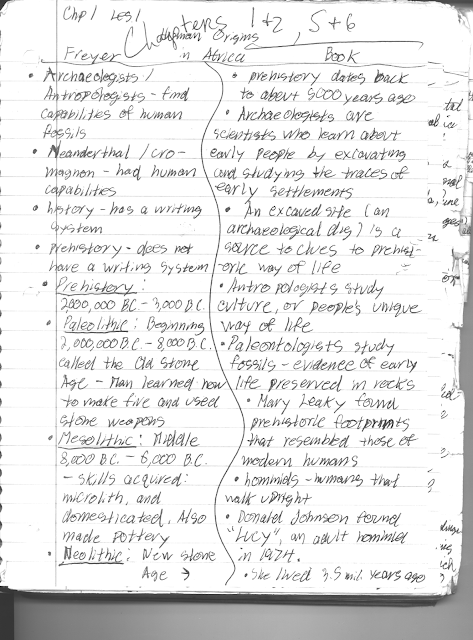 Chp 1 Les 1
Chapters 1+2, 5+6
Human Origins
in Africa
Freyer
• Archaeologists /
Antropologists - find
capabilities of human
fossils
• Neanderthal / cro-
magnon - had human
capabilities
• history - has a writing
system
• prehistory - does not
have a writing system
• Prehistory:
2,000,000 B.C. - 3,000 B.C.
• Paleolithic: Beginning
2,000,000 B.C. - 8,000 B.C.
called the Old Stone
Age - Man learned how
to make fire and used
stone weapons
• Mesolithic: Middle
8,000 B.C. - 6,000 B.C.
- skills acqured:
microlith, and
domesticated. Also
made pottery
• Neolithic: New stone
Age →
Book
• prehistory dates back
to about 5000 years ago
• Archaeologists are
scientists who learn about
early people by excavating
and studying the traces of
early settlements
• An excaved site (an
archaeological dig) is a
source to clues to prehist-
oric way of life
• Antropologists study
culture, or people's unique
way of life
• Paleontologists study
fossils - evidence of early
life preserved in rocks
• Mary Leaky found
prehistoric footprints
that resembled those of
modern humans
• hominids - humans that
walk upright
• Donald Johnson found
"Lucy", an adult hominid
in 1974.
• She lived 3.5 mil. years ago